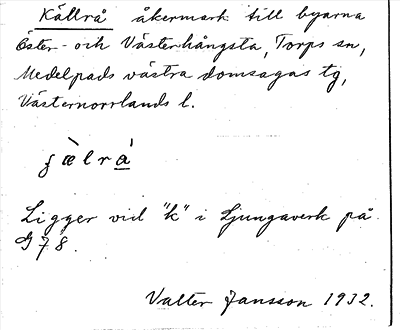 Källrå åkermark till byarna
Öster- och Västerhångsta, Torps sn,
Medelpads västra domsagas tg,
Västernorrlands l.
ʝæ̀lrå̀
Ligger vid "k" i Ljungaverk på
G78.
Valter Jansson 1932.